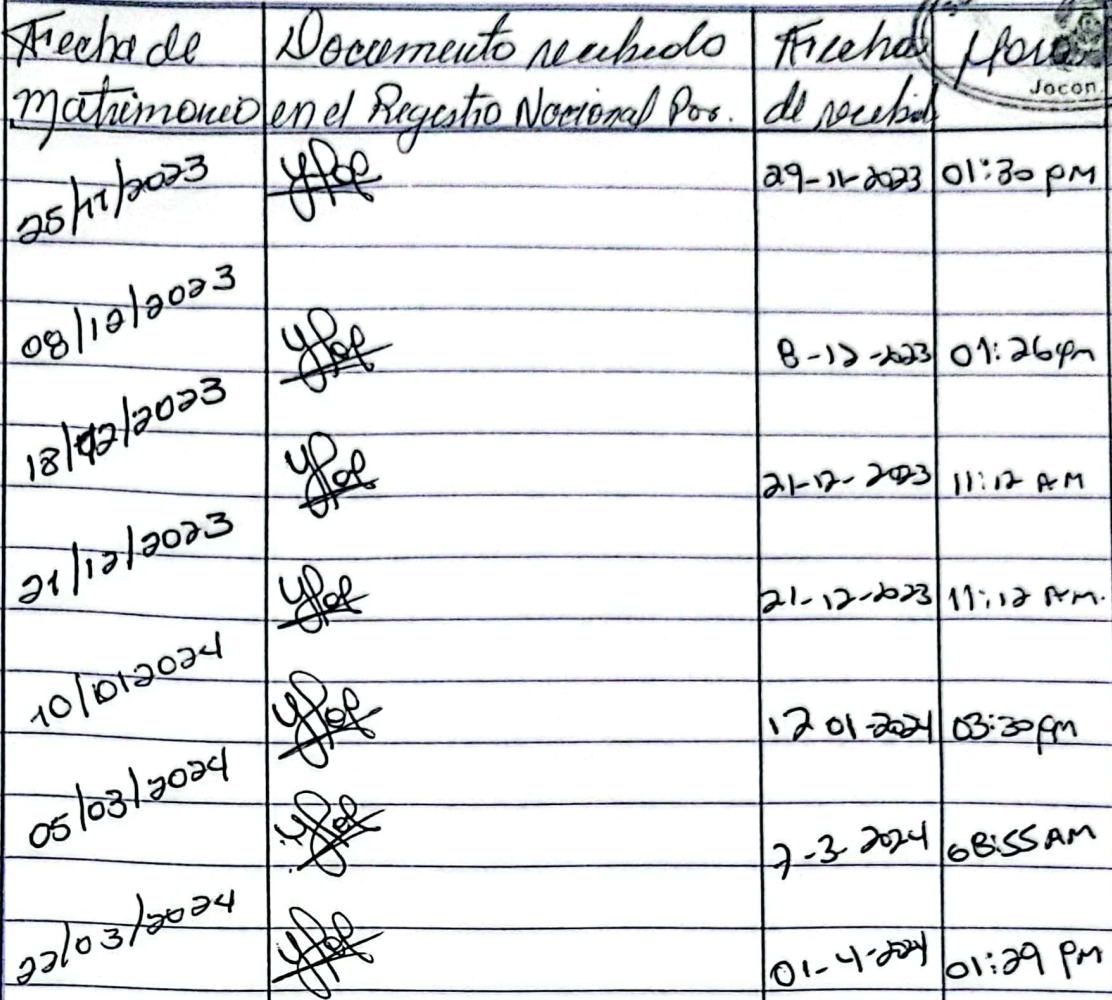 Fecha de Documento recibido Fecha Hora
Matrimonio en el Registro Nacional Por. de recibid
Jocon
25/11/2023 29-11-2023 01:30 PM
08/12/2023 8-12-2023 01:26 pm
18/12/2023 21-12-2023 11:12 AM
21/12/2023 21-12-2023 11:12 A.M.
10/01/2024 12 01-2024 03:30 pm
05/03/2024 7-3-2024 08:55 AM
22/03/2024 01-4-2024 01:29 PM